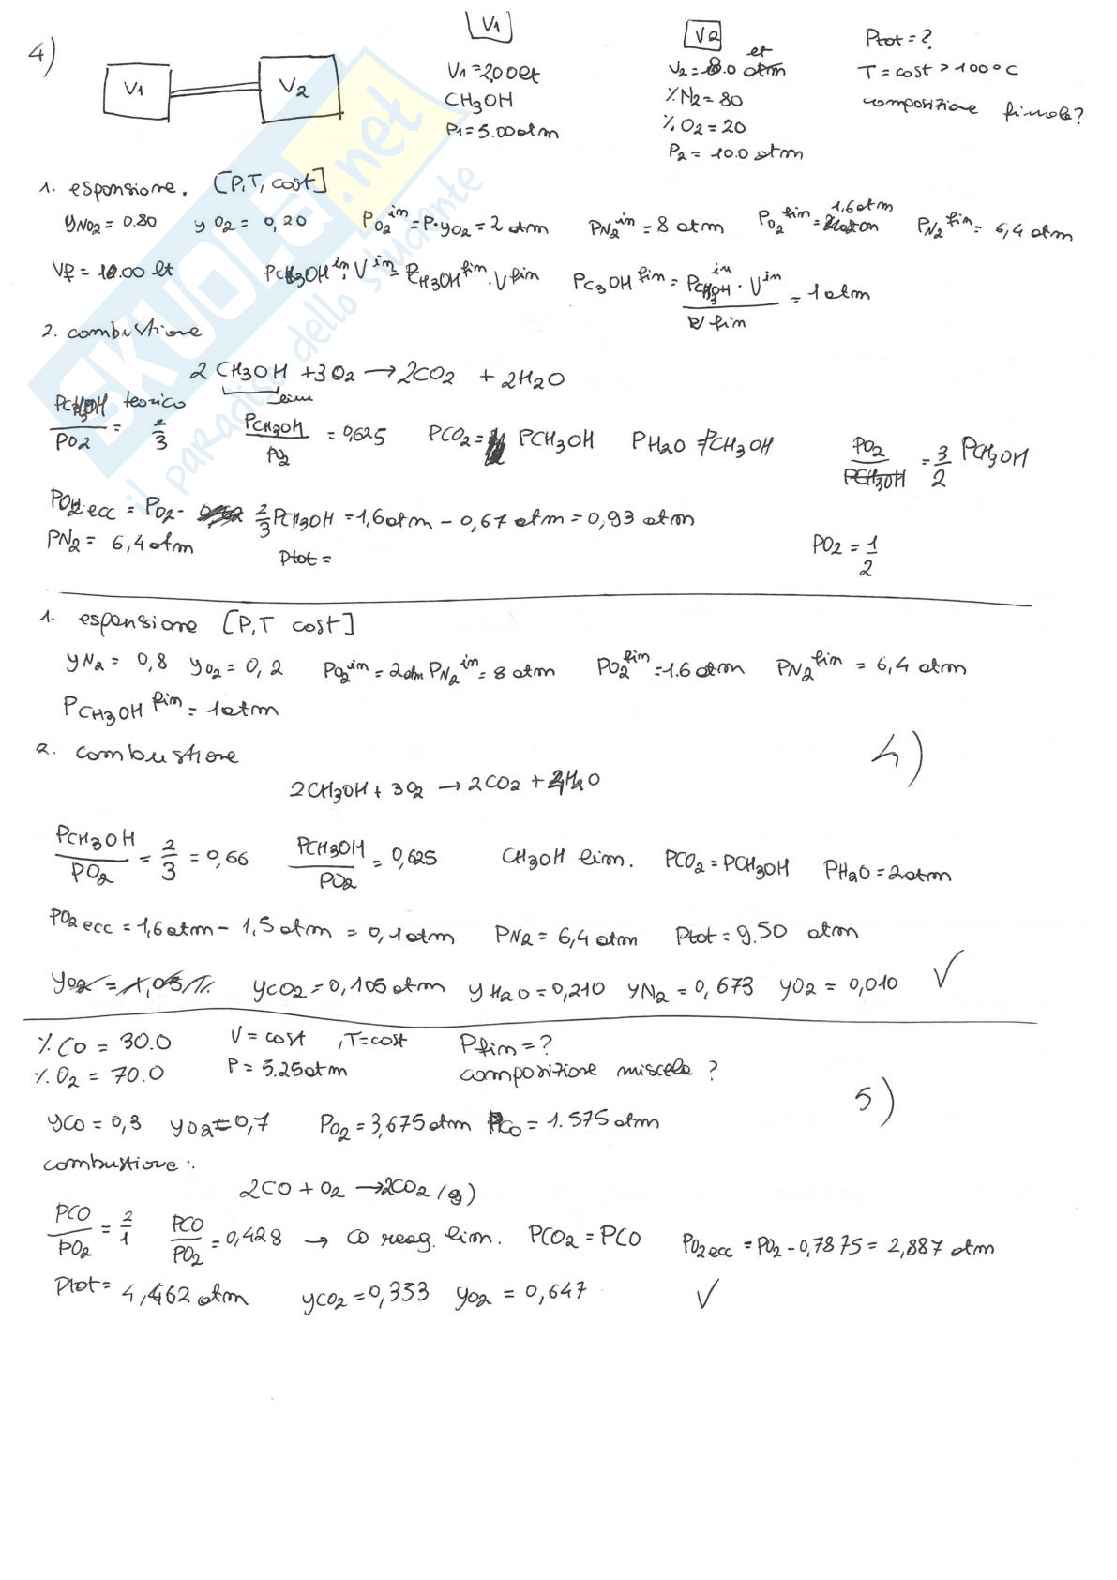 4)
V1
V2
V1
V1 = 2,00 lt
CH3OH
P1 = 5.00 atm
V2
V2 = 8.0 lt atm
% N2 = 80
% O2 = 20
P2 = 10.0 atm
Ptot = ?
T = cost > 100°C
composizione finale?
1. espansione. [P,T, cost]
yNO2 = 0.80 yO2 = 0,20 PO2^in = P·yO2 = 2 atm PN2^in = 8 atm PO2^fin = 1.6 atm PN2^fin = 6,4 atm
VF = 10.00 lt PCH3OH^in · V^in = PCH3OH^fin · V^fin PC3OH^fin = PCH3OH^in · V^in / V fin = 1 atm
2. combustione
2 CH3OH + 3O2 → 2CO2 + 2H2O
lim
PCH3OH / PO2 teorico = 2/3 PCH3OH / PO2 = 0,625 PCO2 = PCH3OH PH2O = PCH3OH PO2 / PCH3OH = 3/2 PCH3OH
PO2 ecc = PO2 - 2/3 PCH3OH = 1,6 atm - 0,67 atm = 0,93 atm
PN2 = 6,4 atm Ptot = PO2 = 1/2
1. espansione [P,T cost]
yN2 = 0,8 yO2 = 0,2 PO2^in = 2 atm PN2^in = 8 atm PO2^fin = 1.6 atm PN2^fin = 6,4 atm
PCH3OH^fin = 1 atm
2. combustione
4)
2CH3OH + 3O2 → 2CO2 + 4H2O
PCH3OH / PO2 = 2/3 = 0,66 PCH3OH / PO2 = 0,625 CH3OH lim. PCO2 = PCH3OH PH2O = 2 atm
PO2 ecc = 1,6 atm - 1,5 atm = 0,1 atm PN2 = 6,4 atm Ptot = 9.50 atm
yCO2 = 0,105 atm yH2O = 0,210 yN2 = 0,673 yO2 = 0,010 ✓
% CO = 30.0 V = cost , T = cost Pfin = ?
% O2 = 70.0 P = 5.25 atm composizione miscela ?
5)
yCO = 0,3 yO2 = 0,7 PO2 = 3,675 atm PCO = 1.575 atm
combustione:
2CO + O2 → 2CO2 (g)
PCO / PO2 = 2/1 PCO / PO2 = 0,428 → CO reag. lim. PCO2 = PCO PO2 ecc = PO2 - 0,7875 = 2,887 atm
Ptot = 4,462 atm yCO2 = 0,353 yO2 = 0,647 ✓
SKUOLA.net
il paradiso dello studente